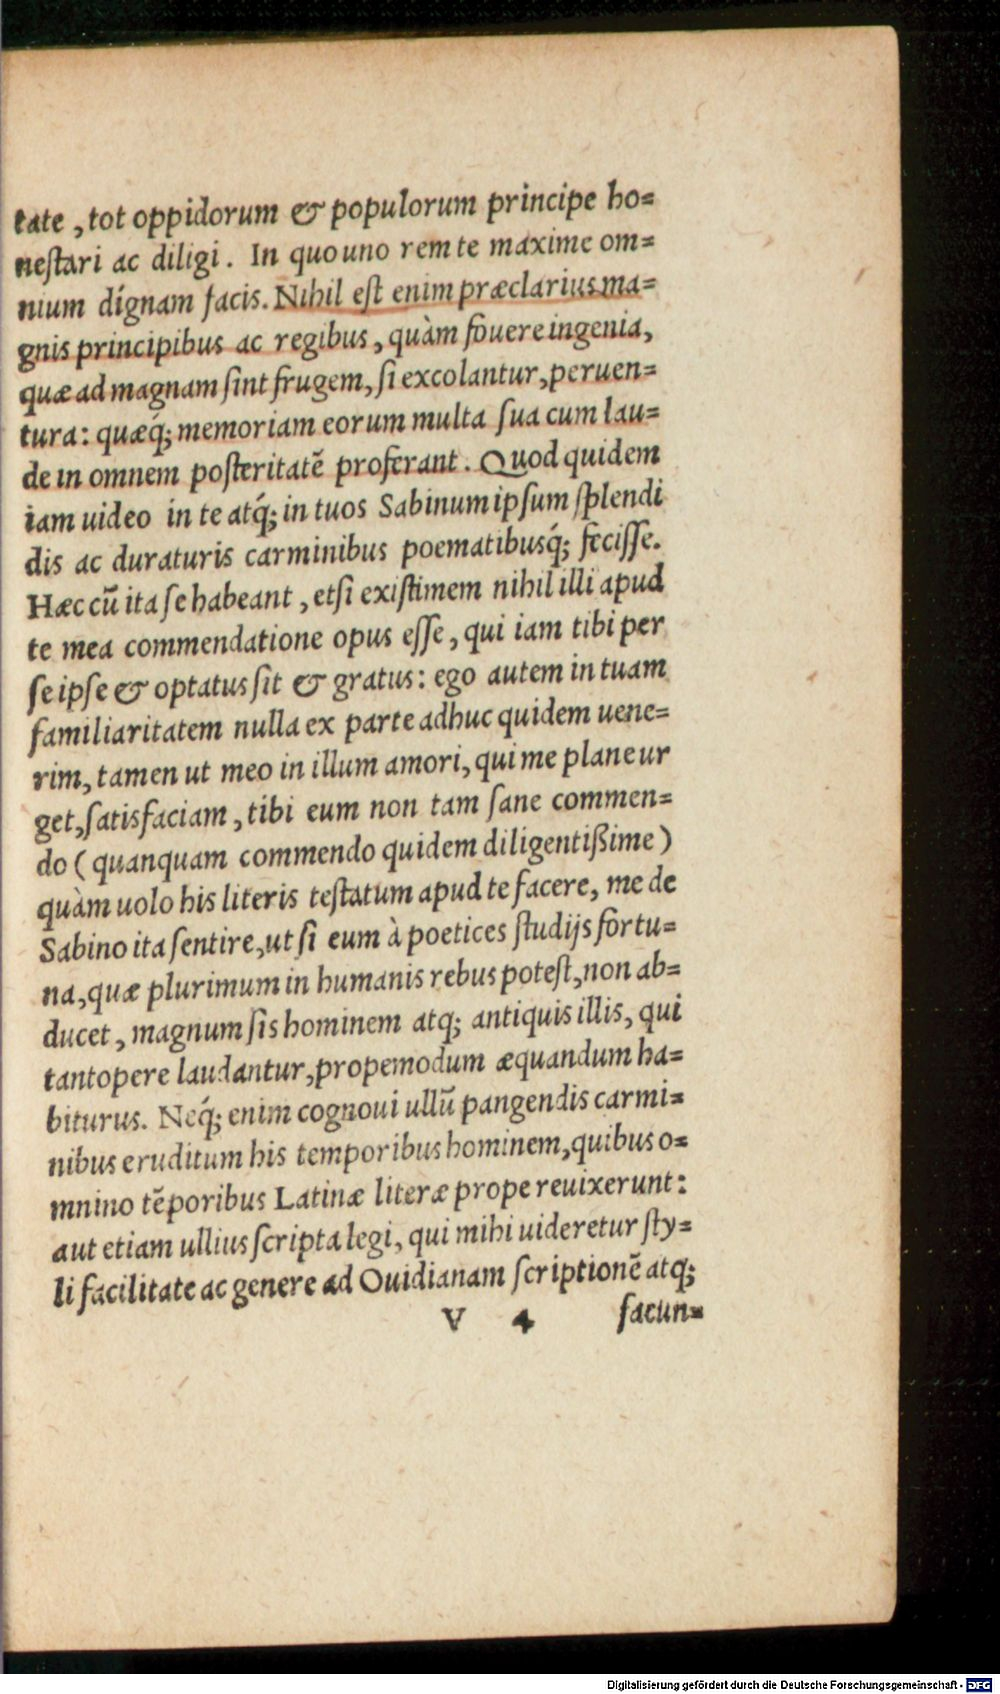 tate, tot oppidorum & populorum principe ho=
neſtari ac diligi. In quo uno rem te maxime om=
nium dignam facis. Nihil eſt enim præclarius ma=
gnis principibus ac regibus, quàm fouere ingenia,
quæ ad magnam ſint frugem, ſi excolantur, peruen=
tura: quæq́; memoriam eorum multa ſua cum lau=
de in omnem poſteritatē proferant. Quod quidem
iam uideo in te atq́; in tuos Sabinum ipſum ſplendi
dis ac duraturis carminibus poematibusq́; feciſſe.
Hæc cū ita ſe habeant, etſi exiſtimem nihil illi apud
te mea commendatione opus eſſe, qui iam tibi per
ſe ipſe & optatus ſit & gratus: ego autem in tuam
familiaritatem nulla ex parte adhuc quidem uene=
rim, tamen ut meo in illum amori, qui me plane ur
get, ſatisfaciam, tibi eum non tam ſane commen=
do (quanquam commendo quidem diligentißime)
quàm uolo his literis teſtatum apud te facere, me de
Sabino ita ſentire, ut ſi eum à poetices ſtudijs fortu=
na, quæ plurimum in humanis rebus poteſt, non ab=
ducet, magnum ſis hominem atq; antiquis illis, qui
tantopere laudantur, propemodum æquandum ha=
biturus. Neq́; enim cognoui ullū pangendis carmi=
nibus eruditum his temporibus hominem, quibus o=
mnino tēporibus Latinæ literæ prope reuixerunt:
aut etiam ullius ſcripta legi, qui mihi uideretur ſty=
li facilitate ac genere ad Ouidianam ſcriptionē atq;
V 4 facun=
Digitalisierung gefördert durch die Deutsche Forschungsgemeinschaft - DFG